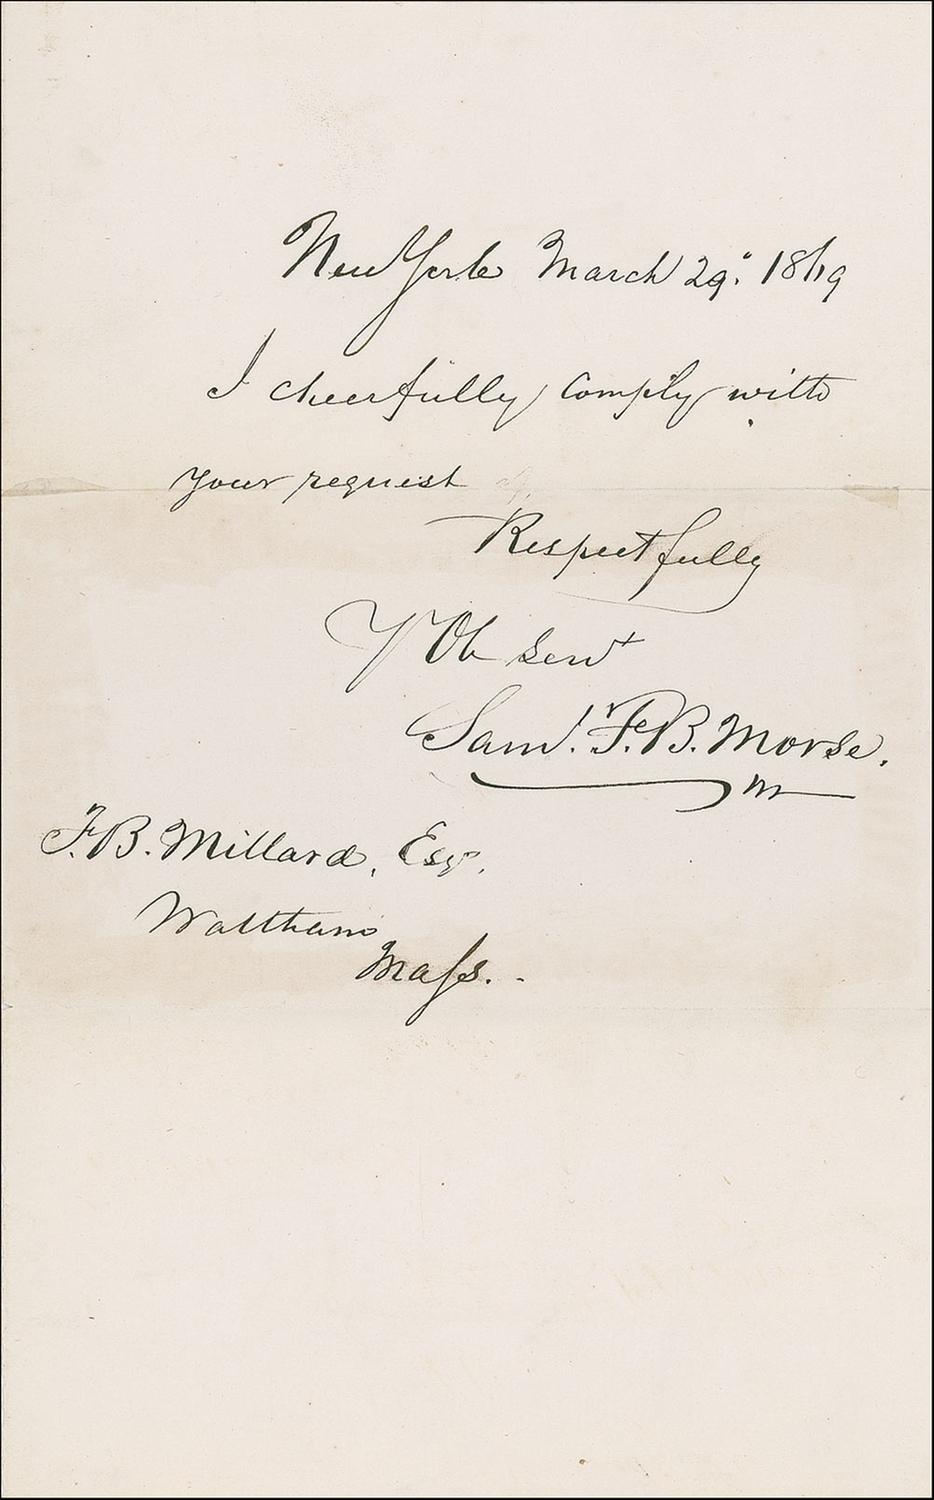 New York March 29. 1869
I cheerfully comply with
your request
Respectfully
Yr Ob Servt
Saml. F. B. Morse.
F. B. Millard, Esqr.
Waltham
Maſs.